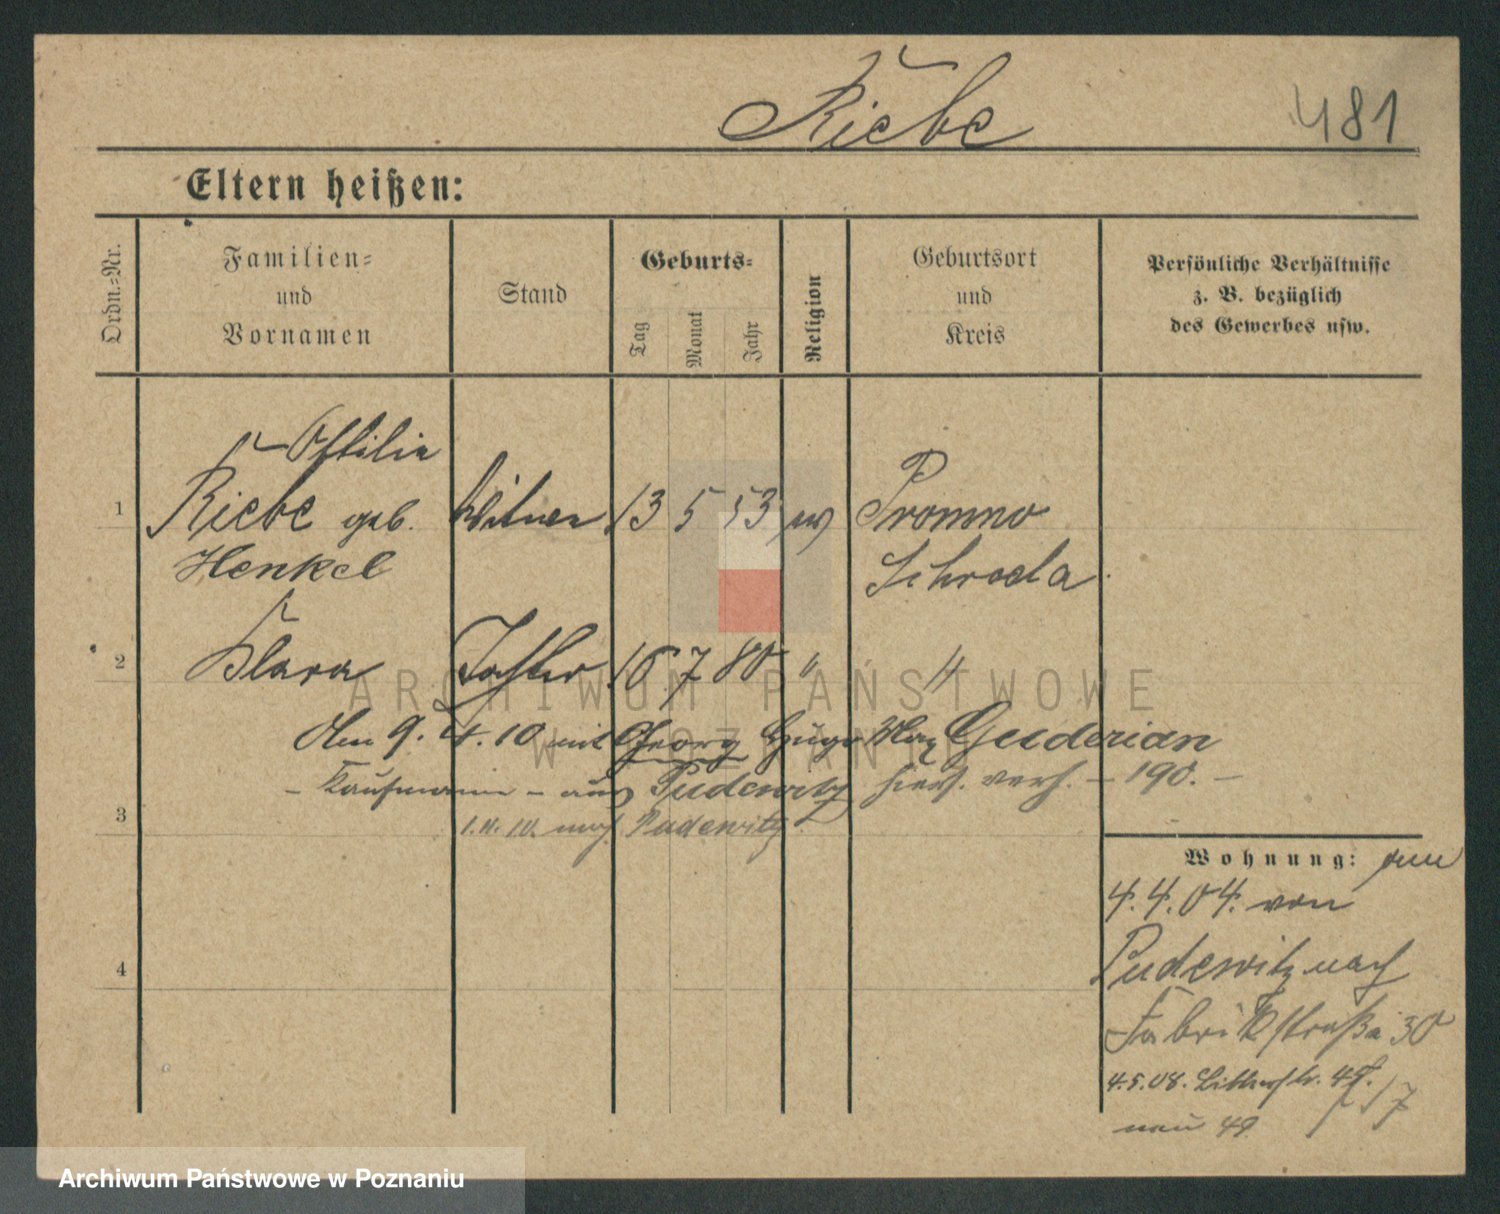 Riebe 481
Eltern heißen:
Ordn.-Nr.
Familien-
und
Vornamen
Stand
Geburts-
Tag
Monat
Jahr
Religion
Geburtsort
und
Kreis
Persönliche Verhältnisse
z. B. bezüglich
des Gewerbes usw.
Ottilie
1 Riebe geb. Witwe 13 5 53 ev Promno
Henkel Schroda
2 Klara Tochter 16 7 80 " "
ARCHIWUM PAŃSTWOWE
W POZNANIU
Am 9. 4. 10 mit Georg Hugo Max Guderian
- Kaufmann - aus Pudewitz hies. verh. - 190. -
3
nach Pudewitz
Wohnung:
4. 4. 04. von
Pudewitz nach
Fabrikstraße 30
4.5.08.
neu 49
4
Archiwum Państwowe w Poznaniu